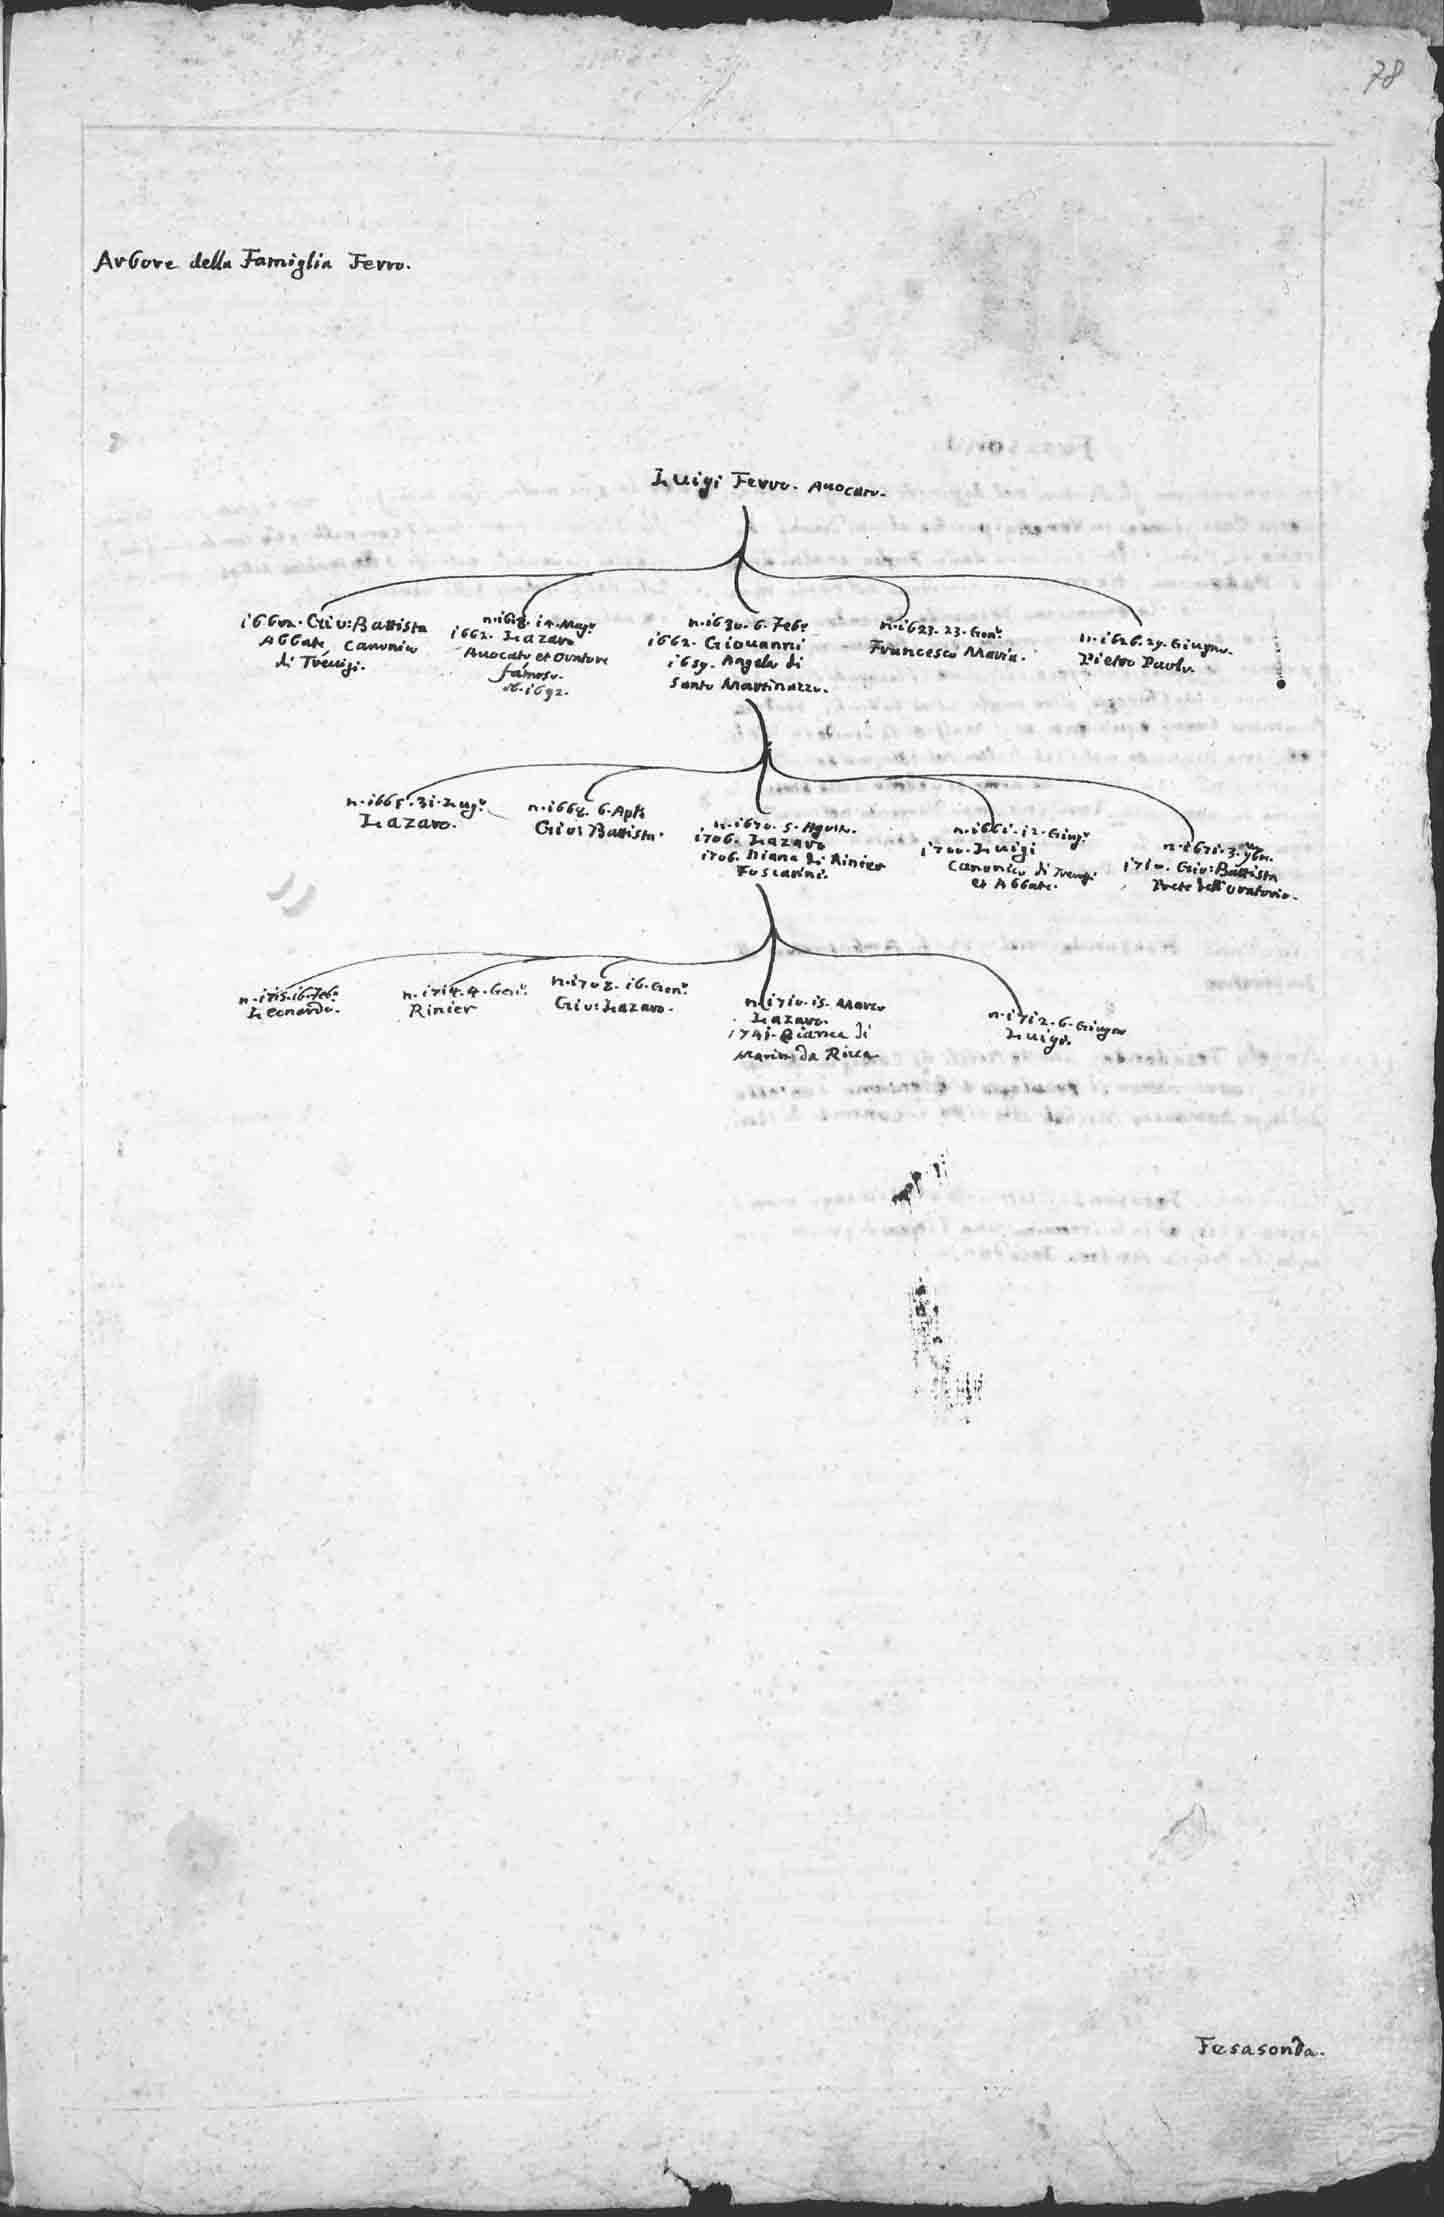 78
Arbore della Famiglia Ferro.
Luigi Ferro. Auocato.
Giu: Battista
Abbate Canonico
di Treuigi.
1662. Lazaro
Auocato et Oratore
famoso.
ob. 1692.
n. 1630. 6. Febº
1662. Giouanni
1659. Angela di
Santo Martinazzo.
n. 1623. 23. Genº.
Francesco Maria.
n. 1626. 29. Giugno.
Pietro Paolo.
n. 1665. 31. Lugº
Lazaro.
n. 1668. 6. Aple
Gio: Battista.
n. 1670. 5. Agosto.
1706. Lazaro
1706. Diana di Rinier
Foscarini.
n. 1661. 12. Giugº
1700. Luigi
Canonico di Treuigi
et Abbate.
n. 1671. 3. 9bre.
1710. Gio: Battista
Prete dell'oratorio.
n. 1715. 16. Febº
Leonardo.
n. 1714. 4. Genº.
Rinier
n. 1708. 16. Genº.
Gio: Lazaro.
n. 1710. 15. Marzo
Lazaro.
1741. Bianca di
Marin da Riua
n. 1712. 6. Giugno
Luigi.
Fesasonda.